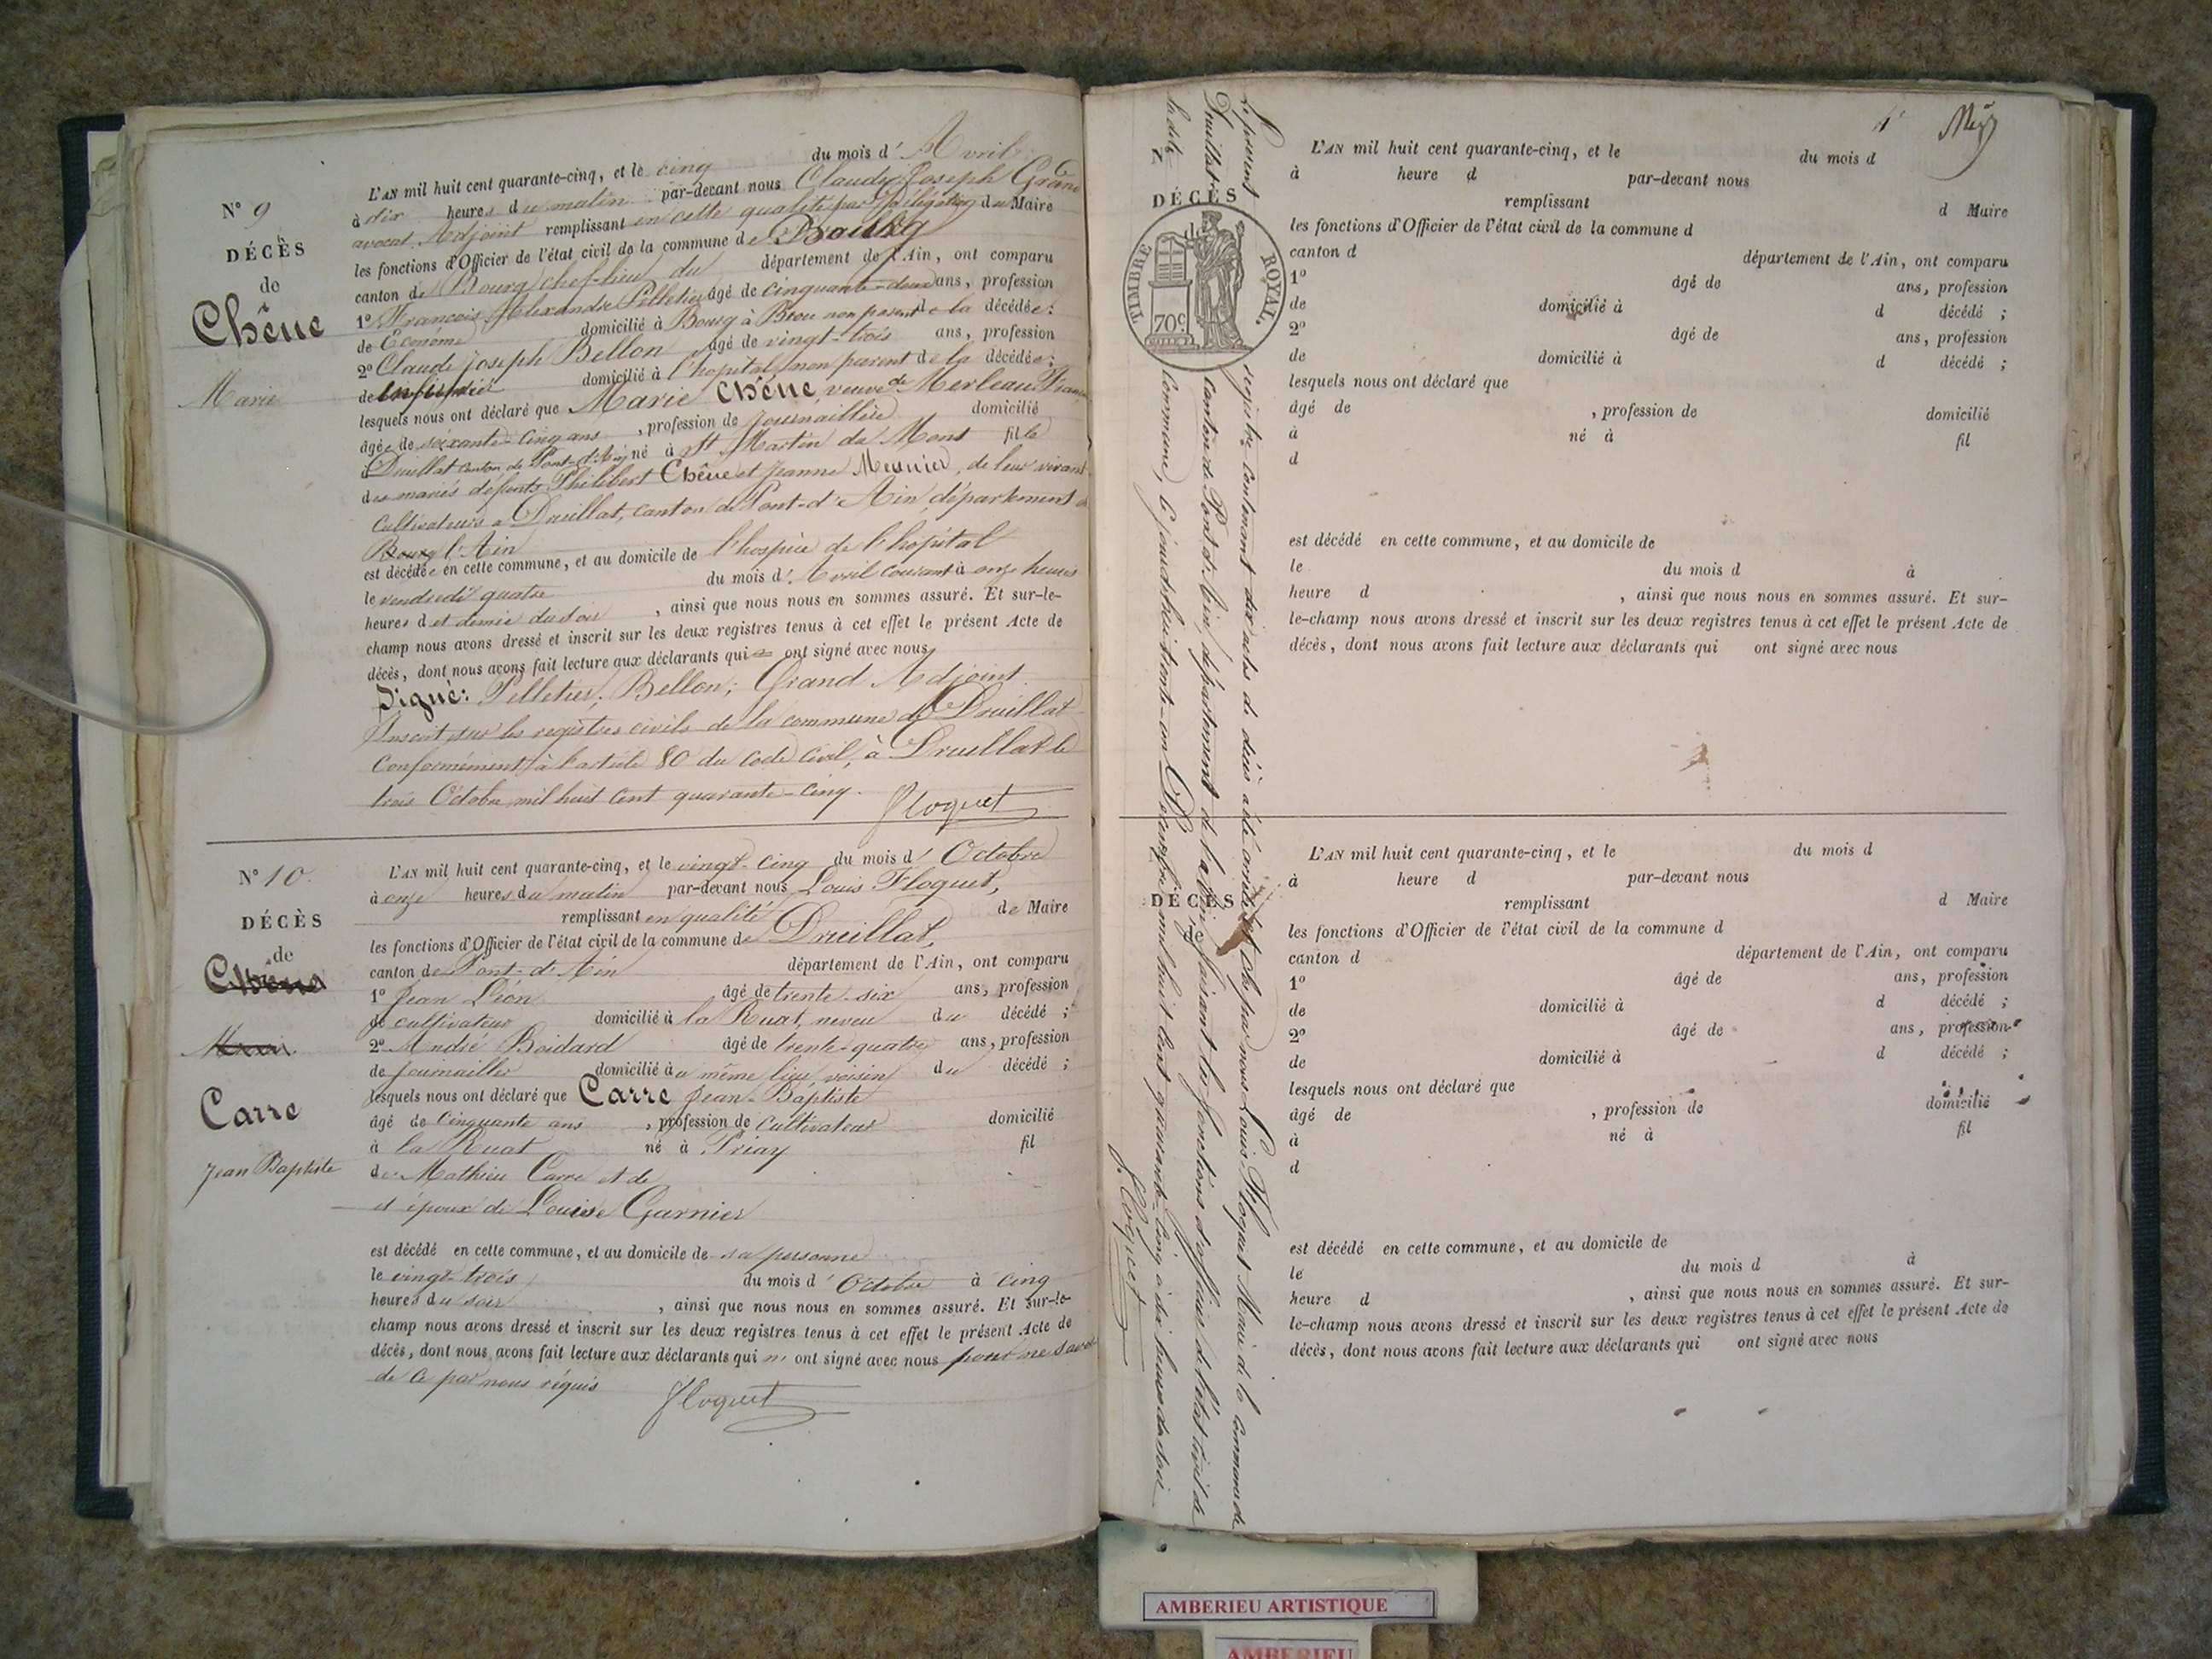 N° 9
DÉCÈS
de
Chêne
Marie
L'AN mil huit cent quarante-cinq, et le cinq du mois d'Avril
à dix heures du matin par-devant nous Claude Joseph Grand
avocat, Adjoint remplissant en cette qualité par délégation du Maire
les fonctions d'Officier de l'état civil de la commune de
canton de Bourg chef-lieu du département de l'Ain, ont comparu
1° François Alexandre Pelletier âgé de cinquante-deux ans, profession
de Econome domicilié à Bourg à Brou non parent de la décédée;
2° Claude Joseph Bellon âgé de vingt-trois ans, profession
de domicilié à l'hopital, non parent de la décédée;
lesquels nous ont déclaré que Marie Chêne, veuve de Merleau
âgée de soixante-cinq ans, profession de Journaillère domicilié
à Druillat canton de Pont-d'Ain né à St Martin du Mont fille
des mariés défunts Philibert Chêne et Jeanne Meunier, de leur vivant
cultivateurs à Druillat, canton de Pont-d'Ain, département de
Bourg l'Ain
est décédée en cette commune, et au domicile de l'hospice de l'hôpital
le vendredi quatre du mois d'Avril courant à onze heures
heures d et demie du soir, ainsi que nous nous en sommes assuré. Et sur-le-
champ nous avons dressé et inscrit sur les deux registres tenus à cet effet le présent Acte de
décès, dont nous avons fait lecture aux déclarants qui ont signé avec nous
Signé: Pelletier; Bellon; Grand Adjoint.
Inscrit sur les registres civils de la commune de Druillat
Conformément à l'article 80 du code civil, à Druillat le
trois Octobre mil huit cent quarante-cinq.
Floquet
N° 10.
DÉCÈS
de
Chêne
Marie
Carre
Jean Baptiste
L'AN mil huit cent quarante-cinq, et le vingt-cinq du mois d'Octobre
à onze heures du matin par-devant nous Louis Floquet,
remplissant en qualité de Maire
les fonctions d'Officier de l'état civil de la commune de Druillat,
canton de Pont-d'Ain département de l'Ain, ont comparu
1° Jean Léon âgé de trente-six ans, profession
de cultivateur domicilié à la Ruat, neveu du décédé;
2° André Boidard âgé de trente-quatre ans, profession
de journailler domicilié au même lieu, voisin du décédé;
lesquels nous ont déclaré que Carre Jean-Baptiste
âgé de cinquante ans, profession de cultivateur domicilié
à la Ruat né à Priay fil
de Mathieu Carre et de
et époux de Louise Garnier
est décédé en cette commune, et au domicile de sa personne
le vingt-trois du mois d'Octobre à cinq
heures du soir, ainsi que nous nous en sommes assuré. Et sur-le-
champ nous avons dressé et inscrit sur les deux registres tenus à cet effet le présent Acte de
décès, dont nous avons fait lecture aux déclarants qui n'ont signé avec nous pour ne savoir
de ce par nous réquis
Floquet
Le présent registre contenant dix actes de décès a été arrêté par nous Louis Floquet Maire de la commune de
Druillat canton de Pont-d'Ain, département de l'Ain, faisant les fonctions d'officier de l'état civil de
la dite Commune, ce jourd'hui trente-un Décembre mil huit cent quarante-cinq à six heures du soir
Floquet
DÉCÈS
TIMBRE ROYAL.
70c
L'AN mil huit cent quarante-cinq, et le du mois d
à heure d par-devant nous
remplissant d Maire
les fonctions d'Officier de l'état civil de la commune d
canton d département de l'Ain, ont comparu
1° âgé de ans, profession
de domicilié à d décédé ;
2° âgé de ans, profession
de domicilié à d décédé ;
lesquels nous ont déclaré que
âgé de , profession de domicilié
à né à fil
d
est décédé en cette commune, et au domicile de
le du mois d à
heure d , ainsi que nous nous en sommes assuré. Et sur-
le-champ nous avons dressé et inscrit sur les deux registres tenus à cet effet le présent Acte de
décès, dont nous avons fait lecture aux déclarants qui ont signé avec nous
DÉCÈS
de
L'AN mil huit cent quarante-cinq, et le du mois d
à heure d par-devant nous
remplissant d Maire
les fonctions d'Officier de l'état civil de la commune d
canton d département de l'Ain, ont comparu
1° âgé de ans, profession
de domicilié à d décédé ;
2° âgé de ans, profession
de domicilié à d décédé ;
lesquels nous ont déclaré que
âgé de , profession de domicilié
à né à fil
d
est décédé en cette commune, et au domicile de
le du mois d à
heure d , ainsi que nous nous en sommes assuré. Et sur-
le-champ nous avons dressé et inscrit sur les deux registres tenus à cet effet le présent Acte de
décès, dont nous avons fait lecture aux déclarants qui ont signé avec nous
AMBERIEU ARTISTIQUE
AMBERIEU